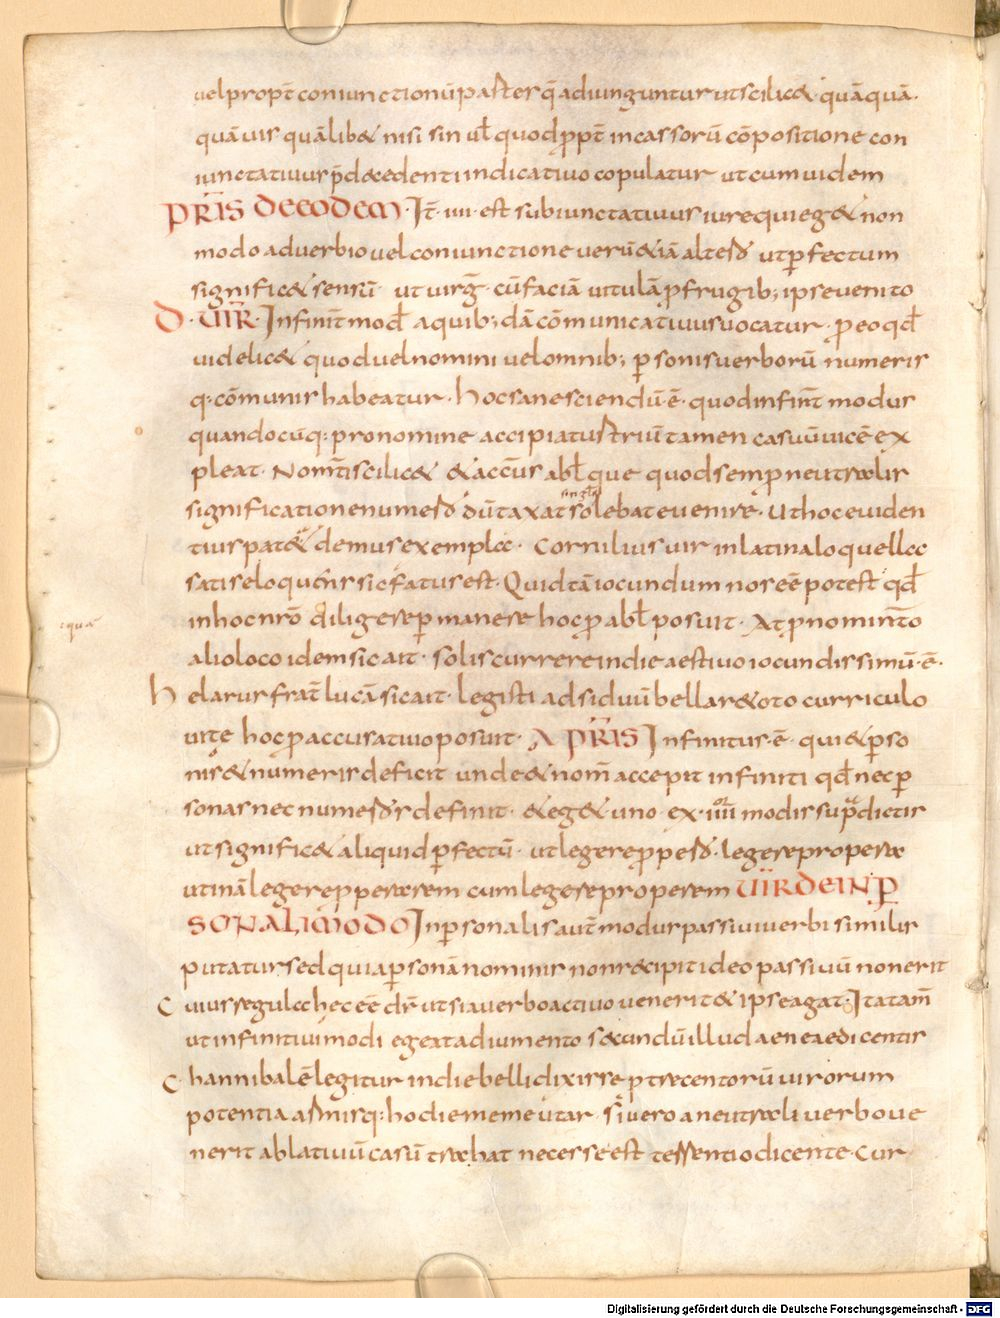 uel propt̄ coniunctionū paster q̄ adiunguntur ut scilic& · quāquā ·
quāuis quālib& nisi sin ul̄ quod ꝓpt̄ incassorū cōpositione con
iunctatiuus p̄decedenti indicatiuo copulatur ut cum uidem
PR̄IS DE EODEM · It̄ · iiii · est subiunctatiuus iure qui eg& non
modo aduerbio uel coniunctione uerū &iā alt̄ ut ꝑfectum
signific& sensū · ut uirg̃ · cū faciā uitulā ꝓ frugib; ipse uenito
D · VIR̄ · Infinit̄ mod̄ a quib; dā cōmunicatiuus uocatur · ꝓ eo qd̄
uidelic& quod uel nomini uel omnib; ꝑsonis uerborū numeris
q: cōmunis habeatur · Hoc sane sciendū ē · quod infinit̄ modus
quandocūq: pronomine accipiat triū tamen casuū uicē ex
pleat · Nom̄ti scilic& & acc̄us abl̄que quod semꝑ neutralis
significatione numer̄ dūtaxat singl̄ solebat euenire · Ut hoc euiden
tius pat& demus exempla · Cornilius uir in latina loquella
satis eloquens sic fatus est · Quid tā iocundum nos eē potest qd̄
in hoc nr̄o diligere ꝑmanere hoc ꝓ abl̄ posuit · At ꝓ nominto
alioloco idem sic ait · solis currere in die aestiuo iocundissimū · ē ·
Helarus frat̄ lucā sic ait · legisti adsiduū bellar& oto curriculo
uite hoc ꝓ accusatiuo posuit · A PR̄IS Infinitus · ē · qui & ꝑso
nis & numeris deficit unde & nom̄ accepit infiniti qd̄ nec ꝑ
sonas nec numer̄s definit · & eg& uno · ex · iiii modis supradictis
ut signific& aliquid ꝑfectū · ut legere ꝓper̄ · legere propera
utinā legere ꝓperarem cum legere properem VIR̄ DE INP̱
SONALI MODO Inꝑsonalis aut̄ modus passiui uerbi similis
putatur sed quia ꝑsonā nominis non recipit ideo passiuū non erit
Cuius regula hec eē dr̄ ut si a uerbo actiuo uenerit & ipse agat · Ita tam̄
ut infinitiui modi egeat adiumento secundū illud aeneae dicentis
C hannibalē legitur in die belli dixisse ꝑ trecentorū uirorum
potentia armisq: hodie me mé utar · Si uero a neutrali uerbo ue
nerit ablatiuū casū trahat necesse est terrentio dicente · Cur
equa
Digitalisierung gefördert durch die Deutsche Forschungsgemeinschaft - DFG